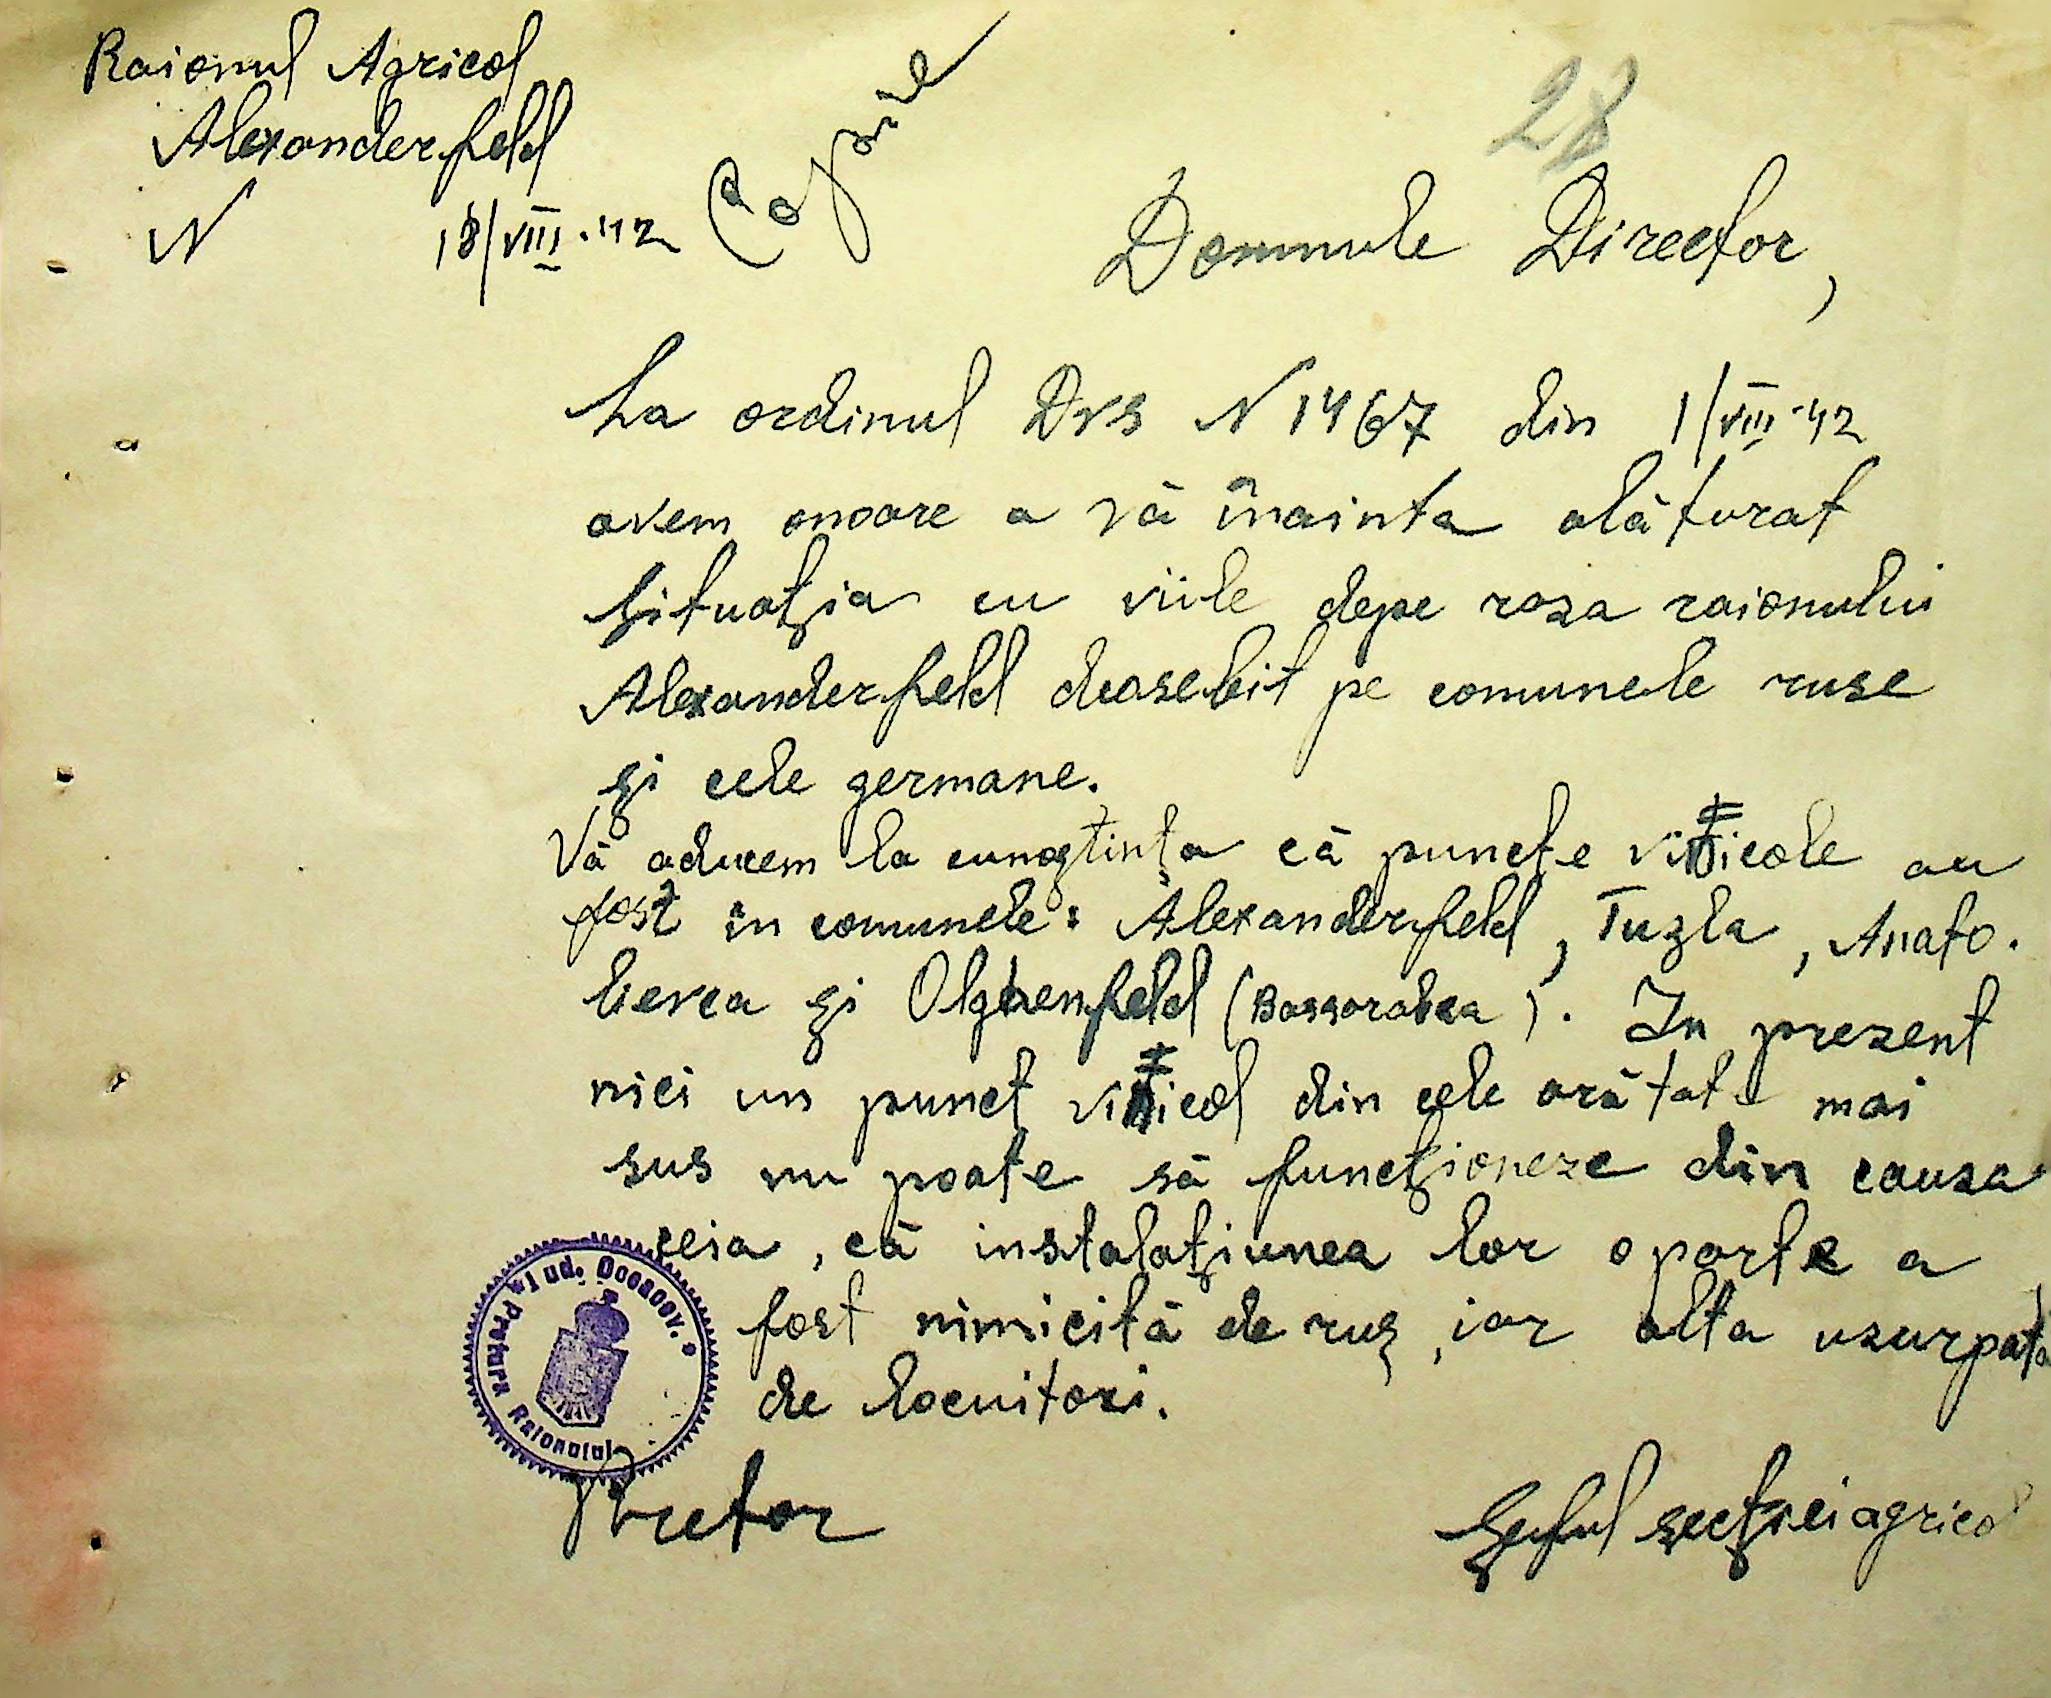 Raionul Agricol
Alexanderfeld
N 18/VIII.42
Copie
28
Domnule Director,
La ordinul Dvs N 1467 din 1/VIII.42
avem onoare a vă înainta alăturat
situația cu viile depe raza raionului
Alexanderfeld deosebit pe comunele ruse
și cele germane.
Vă aducem la cunoștința că puncte viticole au
fost în comunele: Alexanderfeld, Tuzla, Anato.
lievca și Olghenfeld (Bassarabca). In prezent
nici un punct viticol din cele arătate mai
sus nu poate să funcționeze din cauza
ceia, că instalațiunea lor o parte a
fost nimicită de ruș, iar alta uzurpată
de locuitori.
Pretura Raionului Jud. Oceacov.
Pretor
Șeful secției agricol